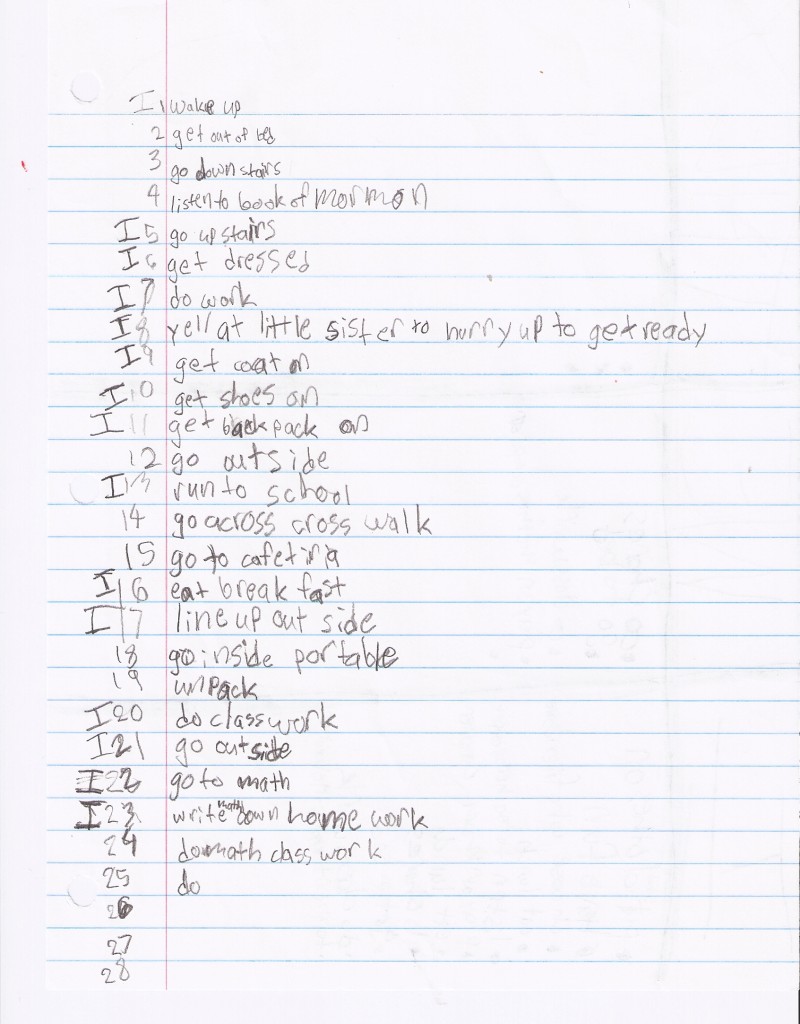 I 1 wake up
2 get out of bed
3 go down stairs
4 listen to book of mormon
I 5 go up stairs
I 6 get dressed
I 7 do work
I 8 yell at little sister to hurry up to get ready
I 9 get coat on
I 10 get shoes on
I 11 get back pack on
12 go outside
I 13 run to school
14 go across cross walk
15 go to cafetiria
I 16 eat break fast
I 17 line up out side
18 go inside portable
19 unpack
I 20 do class work
I 21 go outside
I 22 go to math
I 23 write math down home work
24 do math class work
25 do
26
27
28